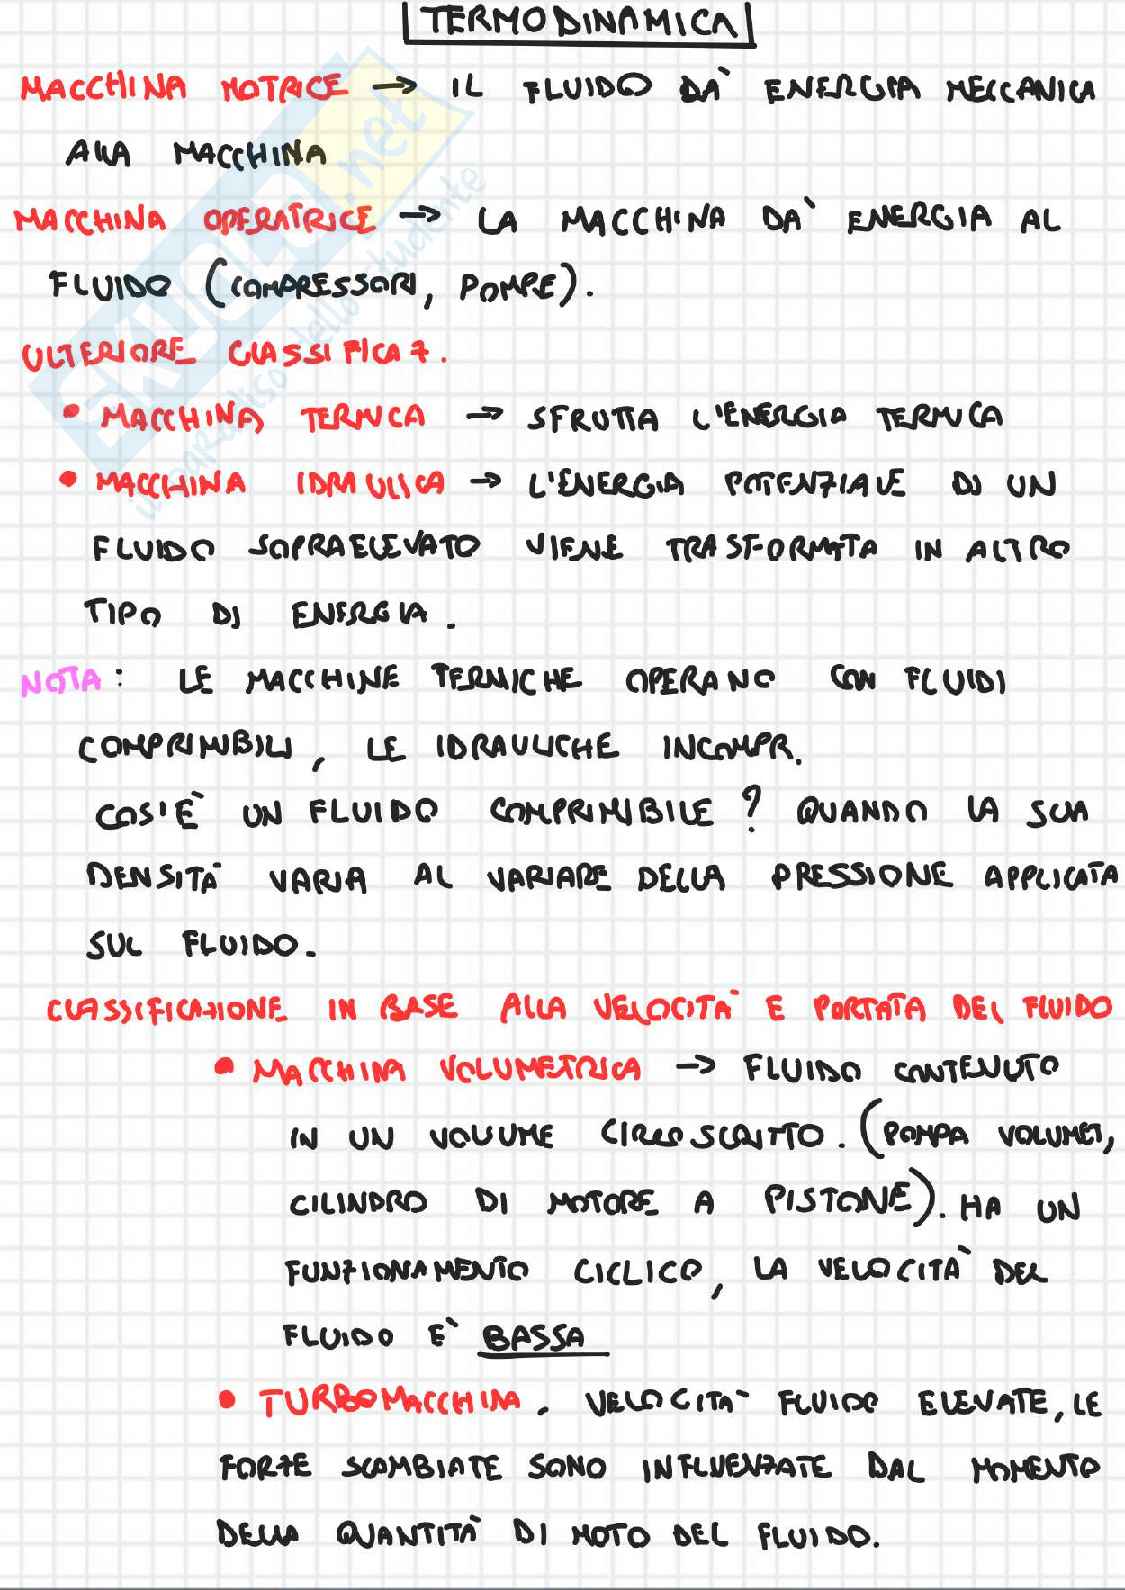 TERMODINAMICA
MACCHINA MOTRICE → IL FLUIDO DA' ENERGIA MECCANICA
ALLA MACCHINA
MACCHINA OPERATRICE → LA MACCHINA DA' ENERGIA AL
FLUIDO (COMPRESSORI, POMPE).
ULTERIORE CLASSIFICAZ.
• MACCHINA TERMICA → SFRUTTA L'ENERGIA TERMICA
• MACCHINA IDRAULICA → L'ENERGIA POTENZIALE DI UN
FLUIDO SOPRAELEVATO VIENE TRASFORMATA IN ALTRO
TIPO DI ENERGIA.
NOTA: LE MACCHINE TERMICHE OPERANO CON FLUIDI
COMPRIMIBILI, LE IDRAULICHE INCOMPR.
COS'È UN FLUIDO COMPRIMIBILE? QUANDO LA SUA
DENSITÀ VARIA AL VARIARE DELLA PRESSIONE APPLICATA
SUL FLUIDO.
CLASSIFICAZIONE IN BASE ALLA VELOCITA' E PORTATA DEL FLUIDO
• MACCHINA VOLUMETRICA → FLUIDO CONTENUTO
IN UN VOLUME CIRCOSCRITTO. (POMPA VOLUMET,
CILINDRO DI MOTORE A PISTONE). HA UN
FUNZIONAMENTO CICLICO, LA VELOCITA' DEL
FLUIDO E' BASSA
• TURBOMACCHINA. VELOCITA' FLUIDO ELEVATE, LE
FORZE SCAMBIATE SONO INFLUENZATE DAL MOMENTO
DELLA QUANTITA' DI MOTO DEL FLUIDO.
SKUOLA.net